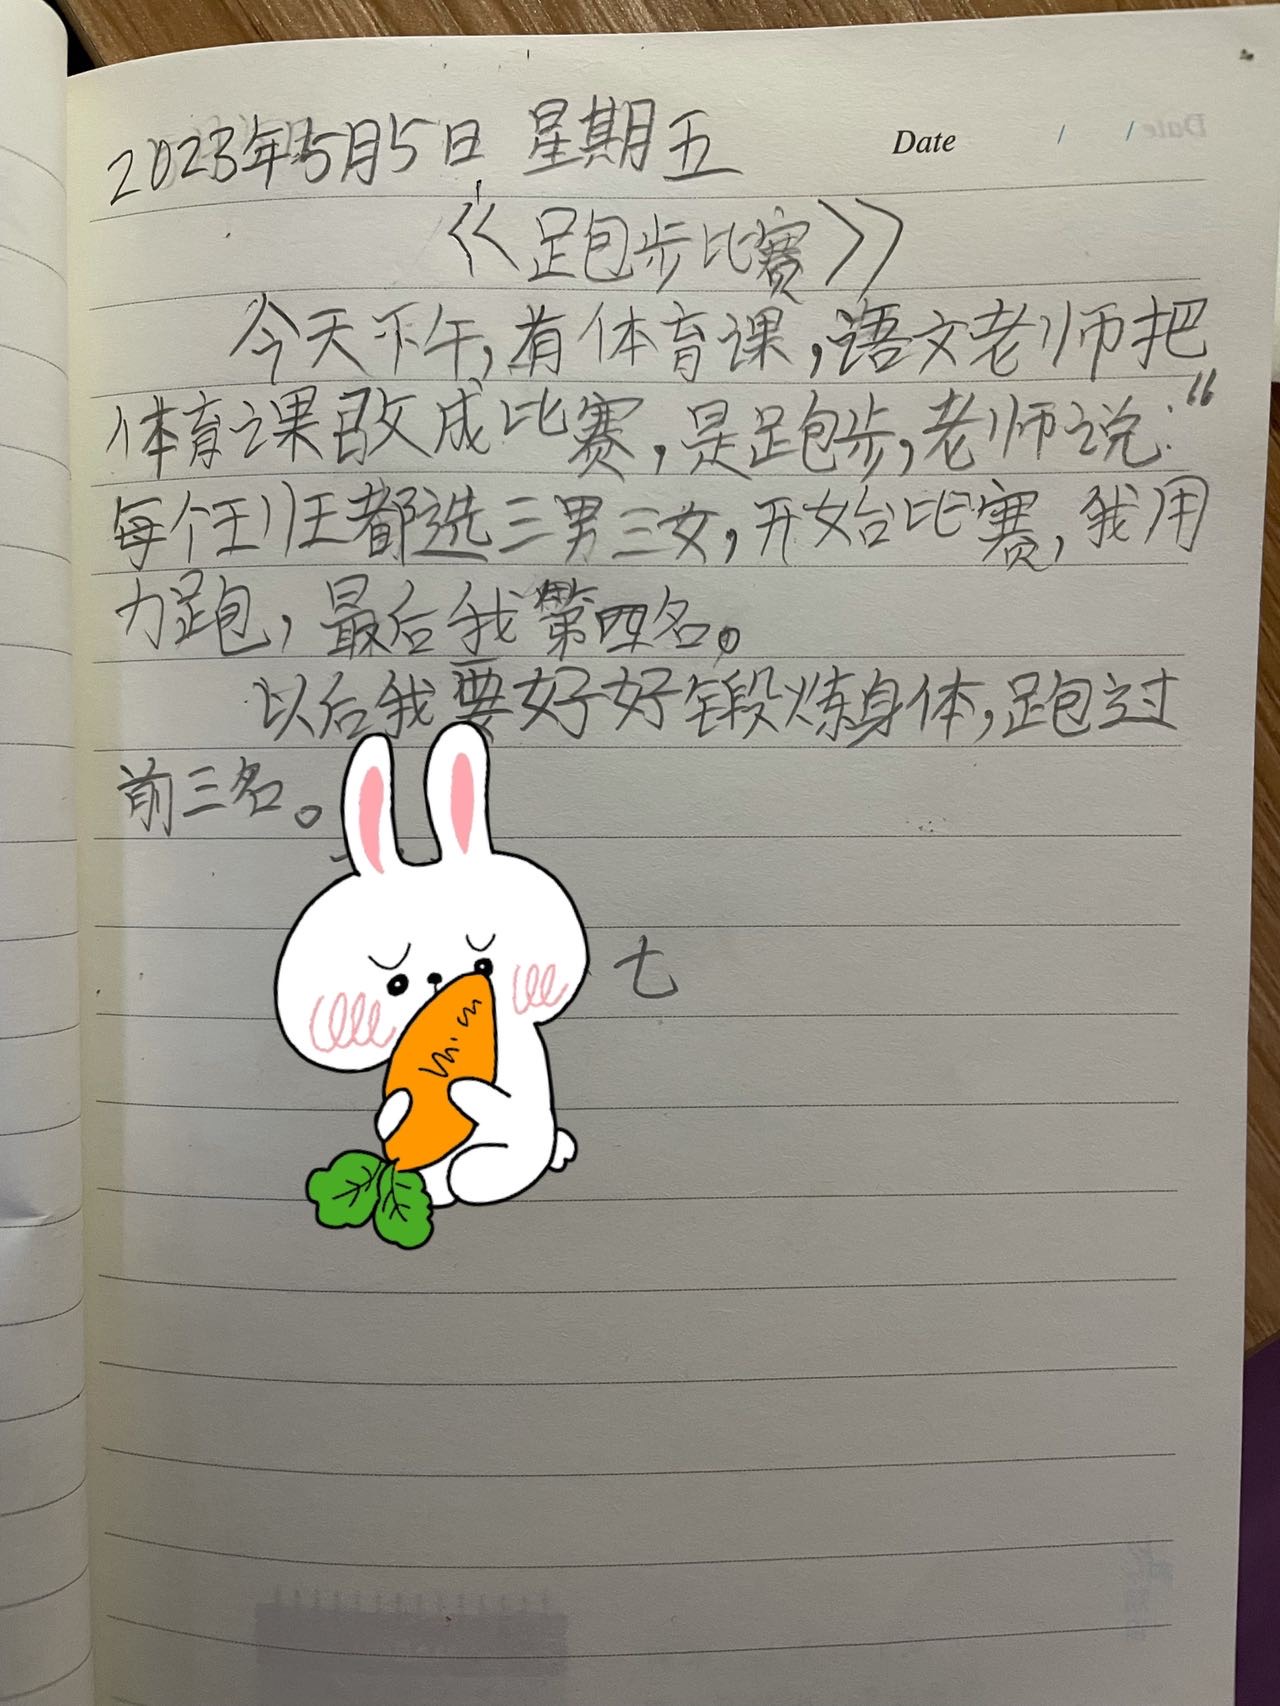 2023年5月5日 星期五
Date / /
《跑步比赛》
今天下午,有体育课,语文老师把
体育课改成比赛,是跑步,老师说:“
每个班都选三男三女,开始比赛,我用
力跑,最后我第四名。
以后我要好好锻炼身体,跑过
前三名。
七